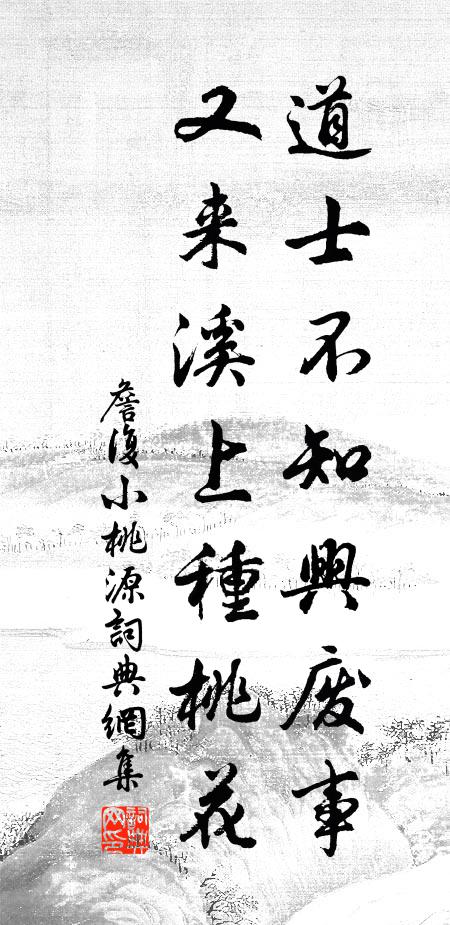 道士不知興废事
又来溪上種桃花
詹復小桃源詞典網集